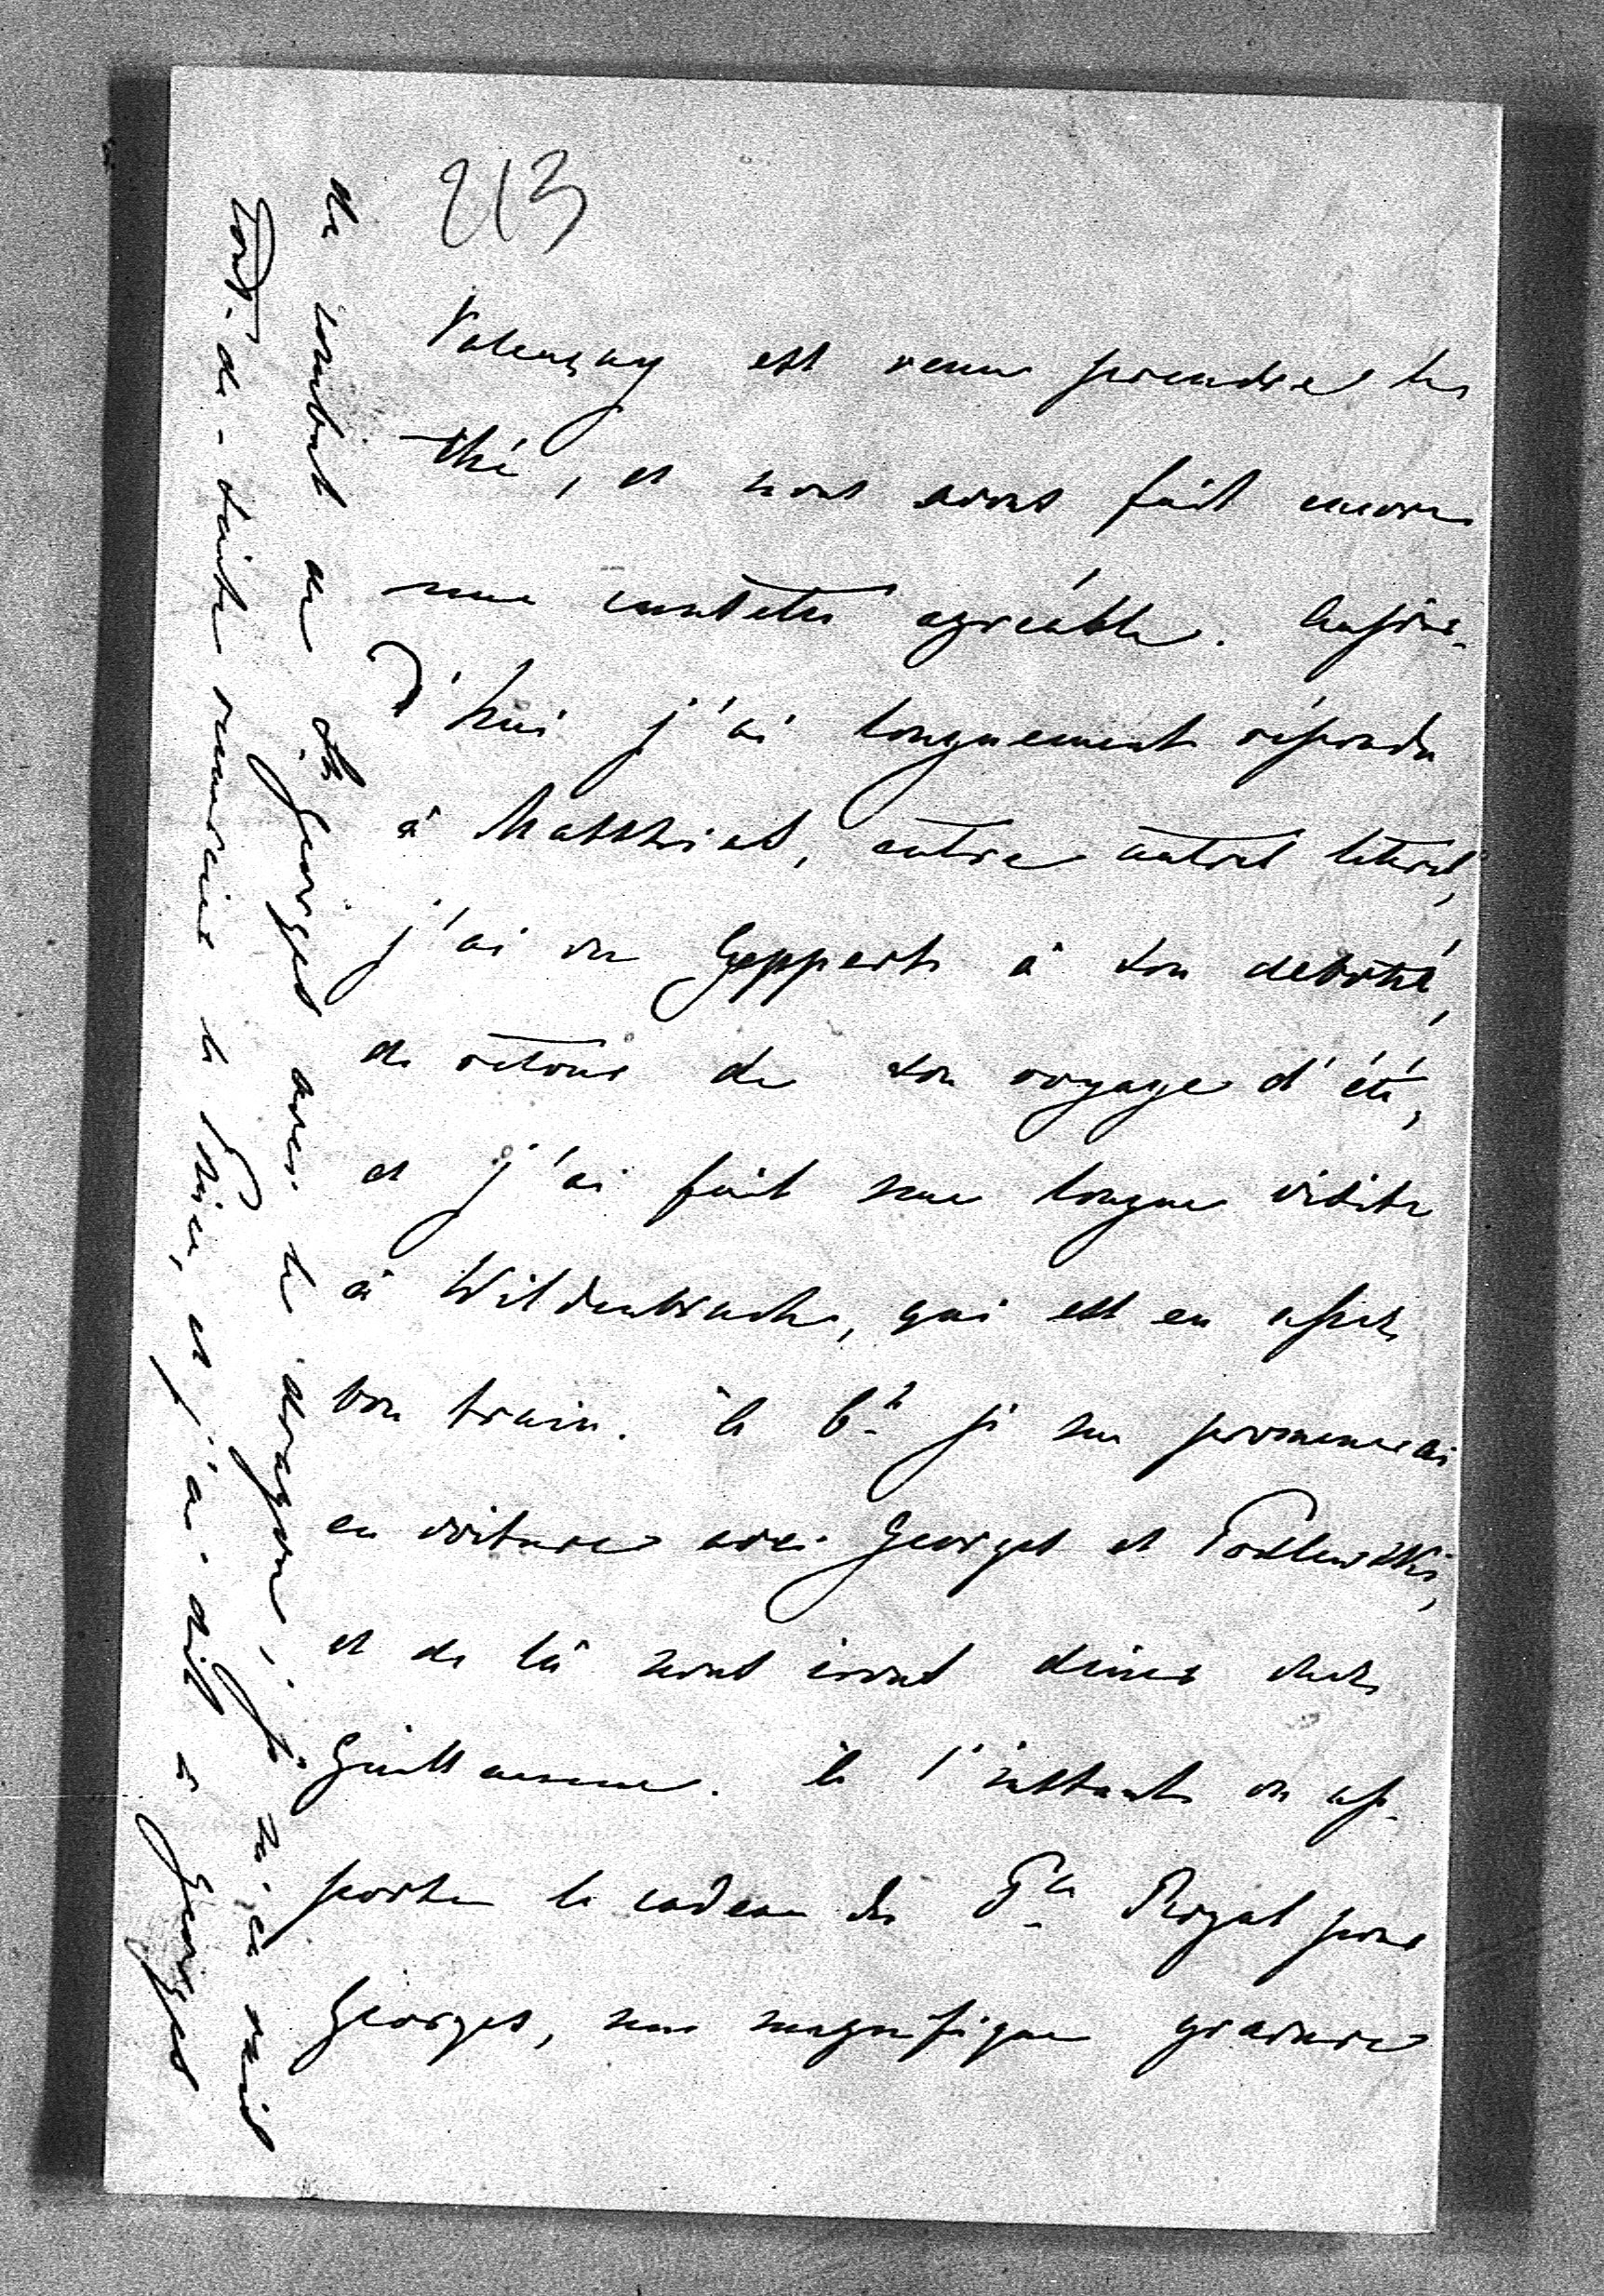 213
Valençay est venu prendre le
thé, et nous avons fait encore
une causette agréable. Aujour-
d'hui j'ai longuement répondu
à Matthias, entre autres lettres,
j'ai vu Geppert à son débotté,
de retour de son voyage d'été,
et j'ai fait une longue visite
à Wildenbruch, qui est en assez
bon train. à 6 h je me promenerai
en voiture avec Georges et
et de là nous irons dîner chez
Guillaume. à l'instant on ap-
porte le cadeau du Pce Royal pour
Georges, une magnifique gravure
du combat de St Georges avec le dragon; je n'ai eu
tout-de-suite remercier le Prince, et j'ai dit à Georges